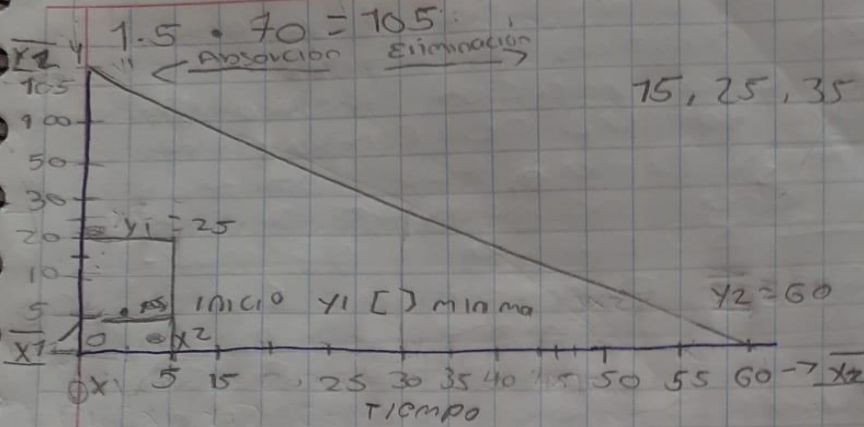 1.5 · 70 = 105
X2 Y
Absorcion Eliminación
105
15, 25, 35
100
50
30
Y1 = 25
20
10
5
inicio Y1 [ ] minma
Y2 = 60
X1
0
X2
0 X1 5 15 25 30 35 40 45 50 55 60 → X2
Tiempo